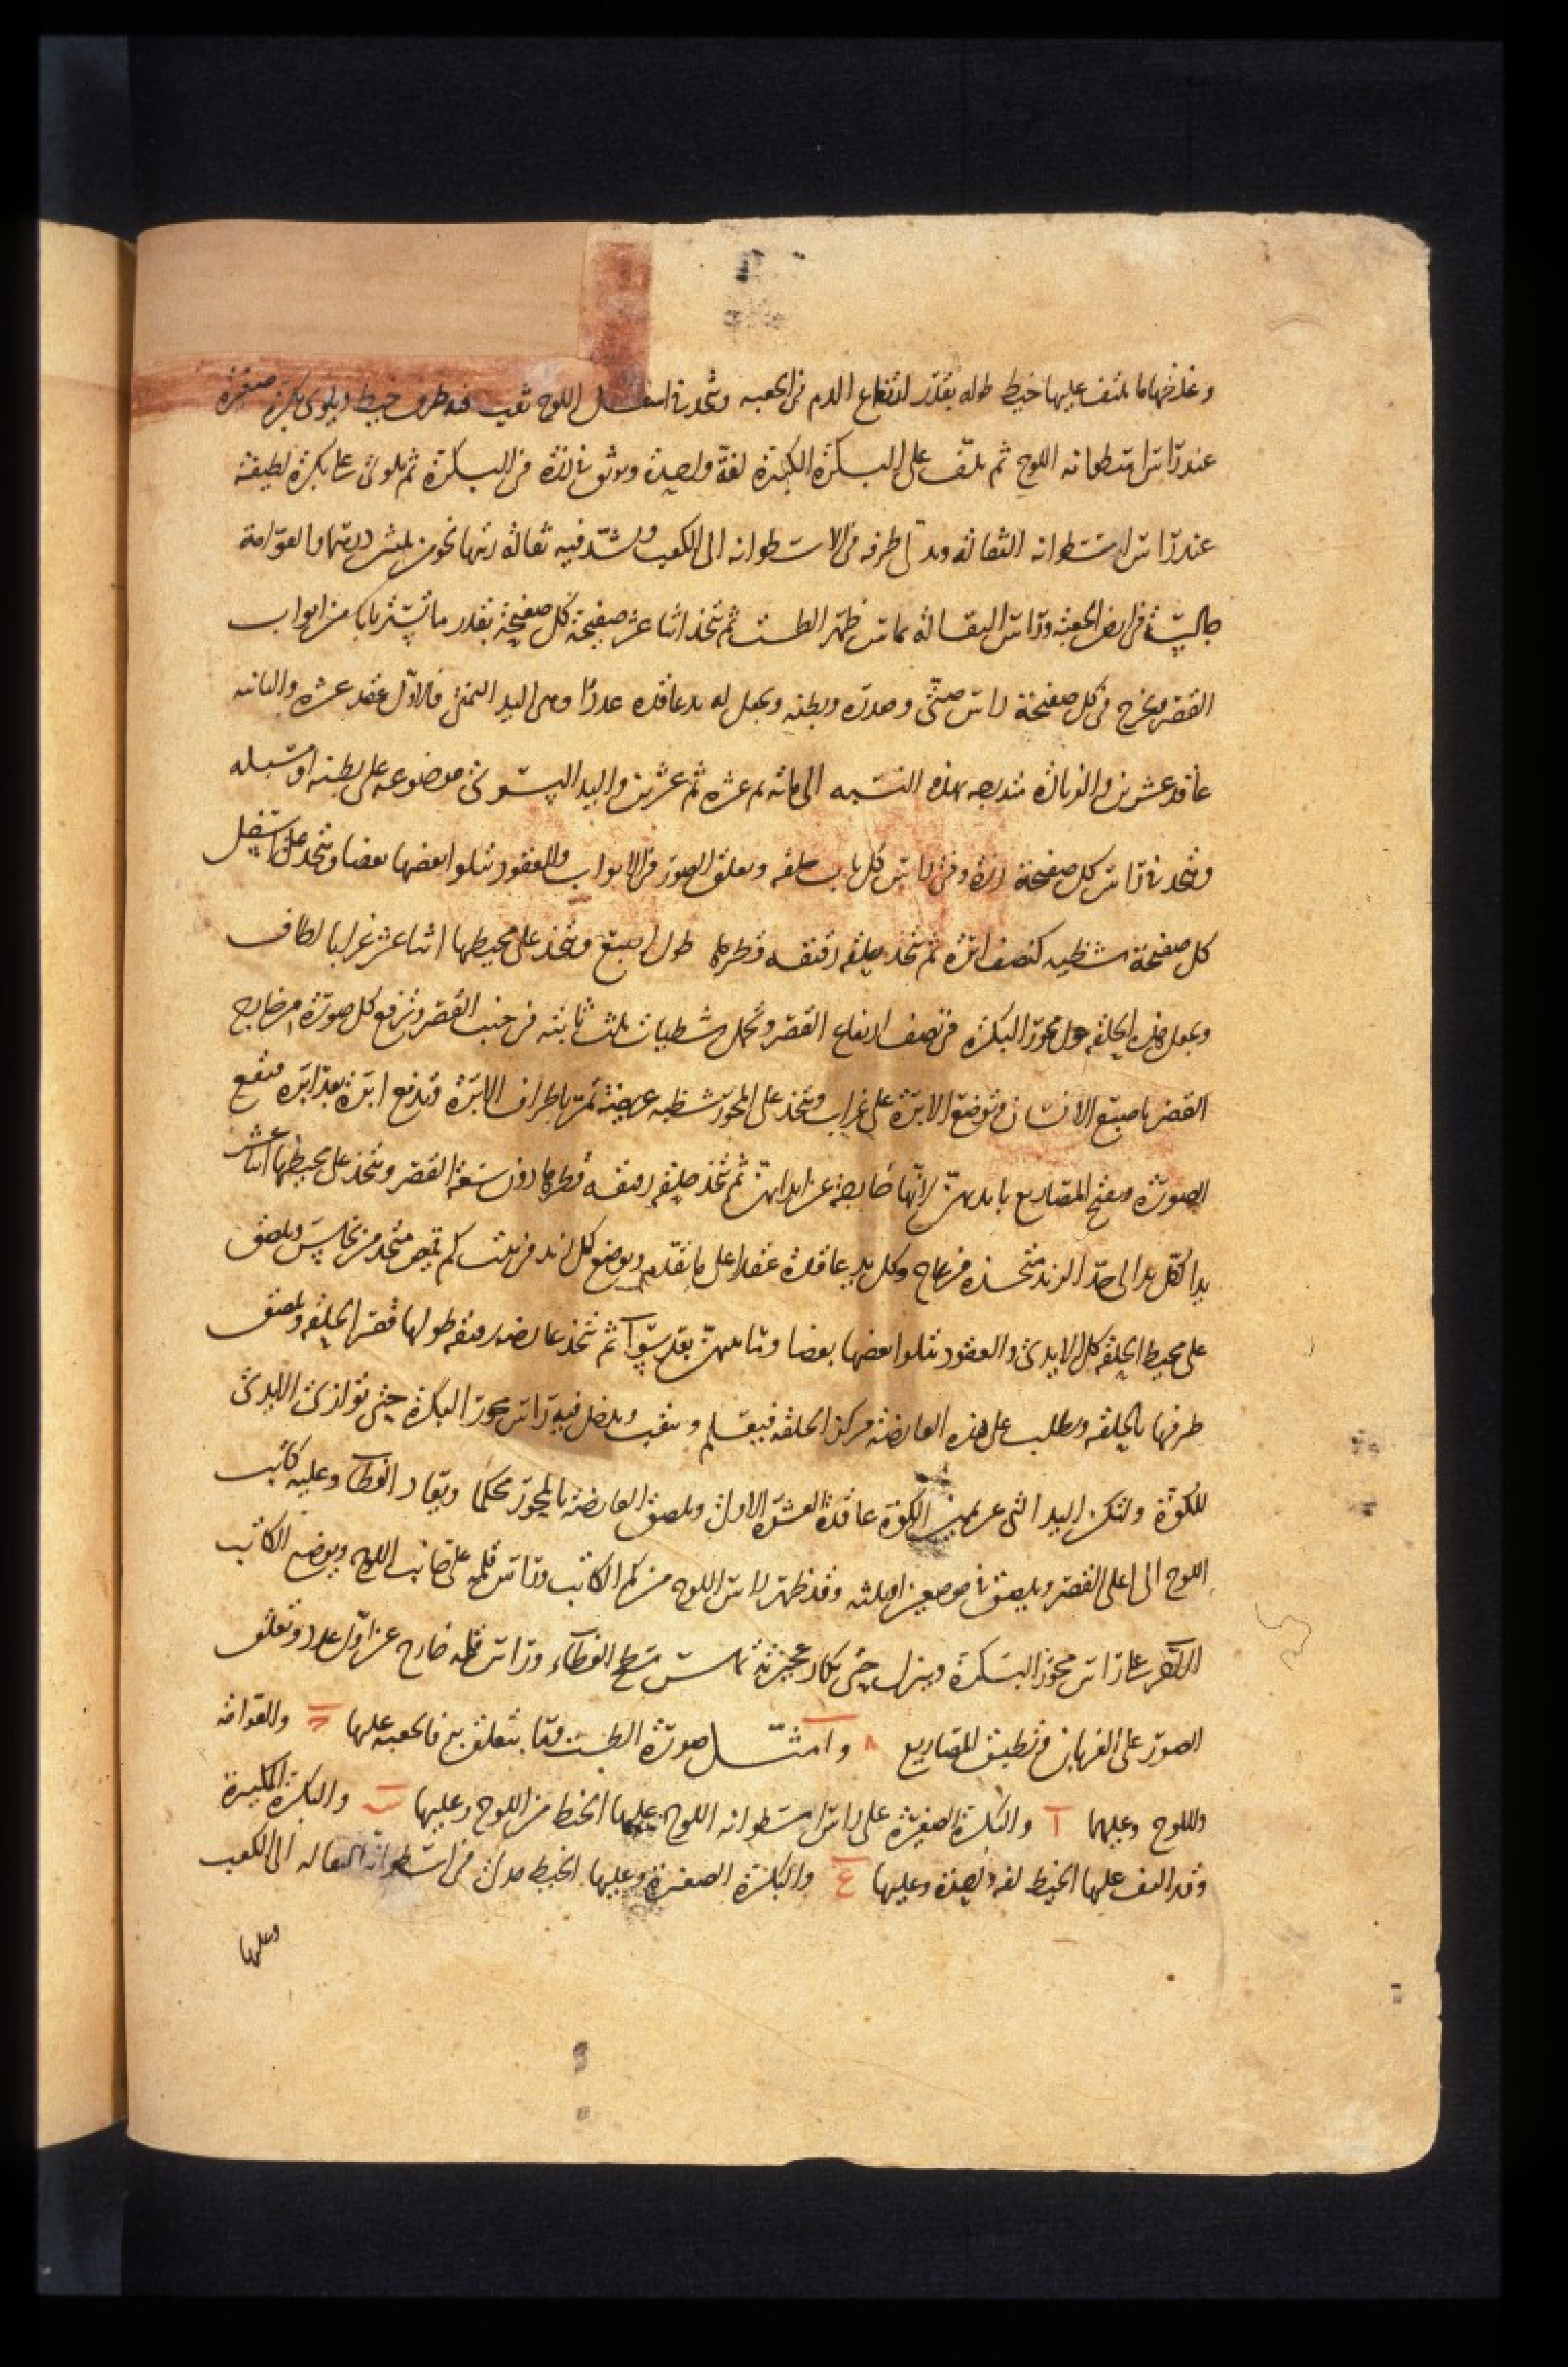 وغلظها ما يلتف عليها خيط طوله بقدر ارتفاع الدم في الكعبه ويتخذ في اسفل اللوح ثقب فيه طرف خيط ويلوى بكرة صغيرة
عند راس اسطوانه اللوح ثم يلتف على البكرة الكبيرة لفة واحدة ويوثق في رزة في البكرة ثم يلوى على بكرة لطيفة
عند راس اسطوانه الثقاله ويدلى طرفه في الاسطوانه الى الكعب ويشد فيه ثقالة زنتها نحو ثلثين درهما والعوامة
جالسة في ارض الكعبة وراس الثقالة يماس ظهر الطست ثم يتخذ اثنا عشر صفيحة كل صفيحة بقدر ما تستر بابا من ابواب
القصر ويخرج في كل صفيحة راس صبي وصدره وبطنه ويجعل له يد عاقده عددا وهي اليد اليمنى فالاول عقد عشرة والثانيه
عاقد عشرين والزيادة متدرجه بهذه النسبه الى مائه ثم عشره ثم عشرين واليد اليسرى موضوعه على بطنه او سبله
ويتخذ في راس كل صفيحة ابرة وفي راس كل باب حلقه وتعلق الصور في الابواب والعقود تتلوا بعضها بعضا ويتخذ على اسفل
كل صفيحة شظيه كنصف ابرة ثم يتخذ حلقه رقيقه قطرها طول اصبع ويتخذ على محيطها اثنا عشر غرابا لطاف
ويجعل هذه الحلقه حول محور البكرة في نصف ارتفاع القصر وتحمل شظيات ثلث ثابته في جنب القصر وترفع كل صورة من خارج
القصر باصبع الانسان وتوضع الابرة على غراب ويتخذ على المحور شظيه عريضة تمر باطراف الابرة فتدفع ابرة بعد ابرة فتقع
الصورة وتفتح المصاريع بايديهن لانها خارجة عن ابدانهن ثم يتخذ حلقه رقيقه قطرها دون سعة القصر ويتخذ على محيطها اثنا عشر
يدا كل يد الى حد الزند متخذه من عاج وكل يد عاقدة عقدا على ما تقدم ويوضع كل زند في ثلث كم قميص متخذ من نحاس ويلصق
على محيط الحلقه كل الايدي والعقود تتلوا بعضها بعضا وما بينهن بقدر سوا ثم يتخذ عارضه رقيقه طولها قطر الحلقه ويلصق
طرفها بالحلقه ويطلب على هذه العارضه مركز الحلقه فيعلم ويثقب ويدخل فيه راس محور البكرة حتى توازى الايدى
للكوة ولتكن اليد التى عن يمين الكوة عاقدة العشرة الاولى ويلصق العارضة بالمحور محكما ويعاد الغطا وعليه كاتب
اللوح الى اعلى القصر ويلصق في موضعين او ثلثه وقد ظهر راس اللوح من كم الكاتب وراس قلمه على جانب اللوح ويوضع الكاتب
الاخر على راس محور البكرة وينزل حتى تكاد عجيزته تماس سطح الغطاء وراس قلمه خارج عن اول عدد وتعلق
الصور على الغربان وتطبق المصاريع ۸ وامثل صورة الطست وما يتعلق به فالكعبه عليها ح والعوامه
واللوح وعليهما ا والبكرة الصغيرة على راس اسطوانه اللوح عليها الخيط من اللوح وعليها ب والبكرة الكبيرة
وقد التف عليها الخيط لفه واحدة وعليها ع والبكرة الصغيرة وعليها الخيط مدلى في اسطوانة الثقاله الى الكعب
وعليها